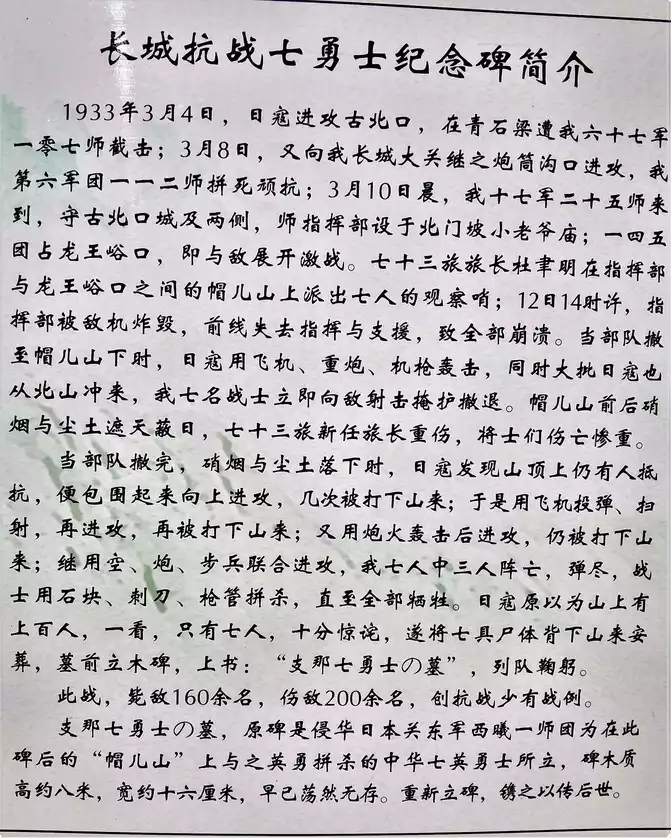 长城抗战七勇士纪念碑简介
1933年3月4日，日寇进攻古北口，在青石梁遭我六十七军
一零七师截击；3月8日，又向我长城大关继之炮筒沟口进攻，我
第六军团一一二师拼死顽抗；3月10日晨，我十七军二十五师来
到，守古北口城及两侧，师指挥部设于北门坡小老爷庙；一四五
团占龙王峪口，即与敌展开激战。七十三旅旅长杜聿明在指挥部
与龙王峪口之间的帽儿山上派出七人的观察哨；12日14时许，指
挥部被敌机炸毁，前线失去指挥与支援，致全部崩溃。当部队撤
至帽儿山下时，日寇用飞机、重炮、机枪轰击，同时大批日寇也
从北山冲来，我七名战士立即向敌射击掩护撤退。帽儿山前后硝
烟与尘土遮天蔽日，七十三旅新任旅长重伤，将士们伤亡惨重。
当部队撤完，硝烟与尘土落下时，日寇发现山顶上仍有人抵
抗，便包围起来向上进攻，几次被打下山来；于是用飞机投弹、扫
射，再进攻，再被打下山来；又用炮火轰击后进攻，仍被打下山
来；继用空、炮、步兵联合进攻，我七人中三人阵亡，弹尽，战
士用石块、刺刀、枪管拼杀，直至全部牺牲。日寇原以为山上有
上百人，一看，只有七人，十分惊诧，遂将七具尸体背下山来安
葬，墓前立木碑，上书：“支那七勇士の墓”，列队鞠躬。
此战，毙敌160余名，伤敌200余名，创抗战少有战例。
支那七勇士の墓，原碑是侵华日本关东军西曦一师团为在此
碑后的“帽儿山”上与之英勇拼杀的中华七英勇士所立，碑木质
高约八米，宽约十六厘米，早已荡然无存。重新立碑，镌之以传后世。